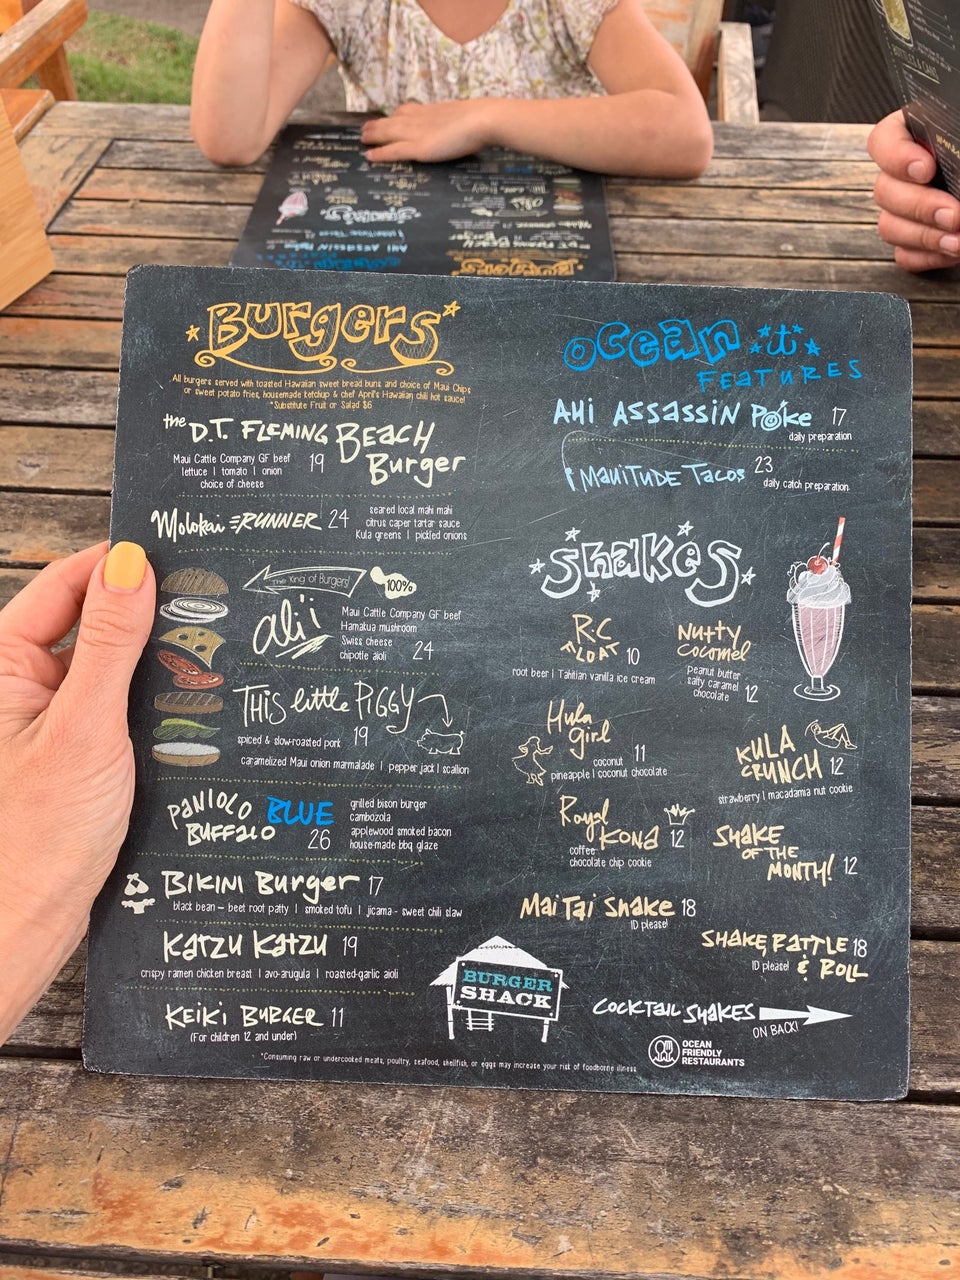 Burgers
All burgers served with toasted Hawaiian sweet bread buns and choice of Maui Chips
or sweet potato fries, housemade ketchup & chef April's Hawaiian chili hot sauce!
*Substitute Fruit or Salad $6
the D.T. FLEMING BEACH
Burger
19
Maui Cattle Company GF beef
lettuce | tomato | onion
choice of cheese
Molokai RUNNER 24
seared local mahi mahi
citrus caper tartar sauce
Kula greens | pickled onions
The King of Burgers!
100%
ali'i
Maui Cattle Company GF beef
Hamakua mushroom
Swiss cheese
chipotle aioli 24
THIS little PIGGY
spiced & slow-roasted pork 19
caramelized Maui onion marmalade | pepper jack | scallion
PANIOLO BLUE
BUFFALO 26
grilled bison burger
cambozola
applewood smoked bacon
house-made bbq glaze
BIKINI Burger 17
black bean - beet root patty | smoked tofu | jicama - sweet chili slaw
Katzu Katzu 19
crispy ramen chicken breast | avo-arugula | roasted-garlic aioli
KEIKI BURGER 11
(For children 12 and under)
BURGER
SHACK
*Consuming raw or undercooked meats, poultry, seafood, shellfish, or eggs may increase your risk of foodborne illness
Ocean it
FEATURES
AHI ASSASSIN Poke 17
daily preparation
MauiTUDE Tacos 23
daily catch preparation
Shakes
R.C
FLOAT 10
root beer | Tahitian vanilla ice cream
Nutty
Caramel
peanut butter
salty caramel
chocolate 12
Hula
girl 11
coconut
pineapple | coconut chocolate
KULA
CRUNCH 12
strawberry | macadamia nut cookie
Royal
KONA 12
coffee
chocolate chip cookie
SHAKE
OF THE
MONTH! 12
Mai Tai Shake 18
ID please!
SHAKE, RATTLE 18
& ROLL
ID please!
COCKTAIL SHAKES
ON BACK!
OCEAN
FRIENDLY
RESTAURANTS